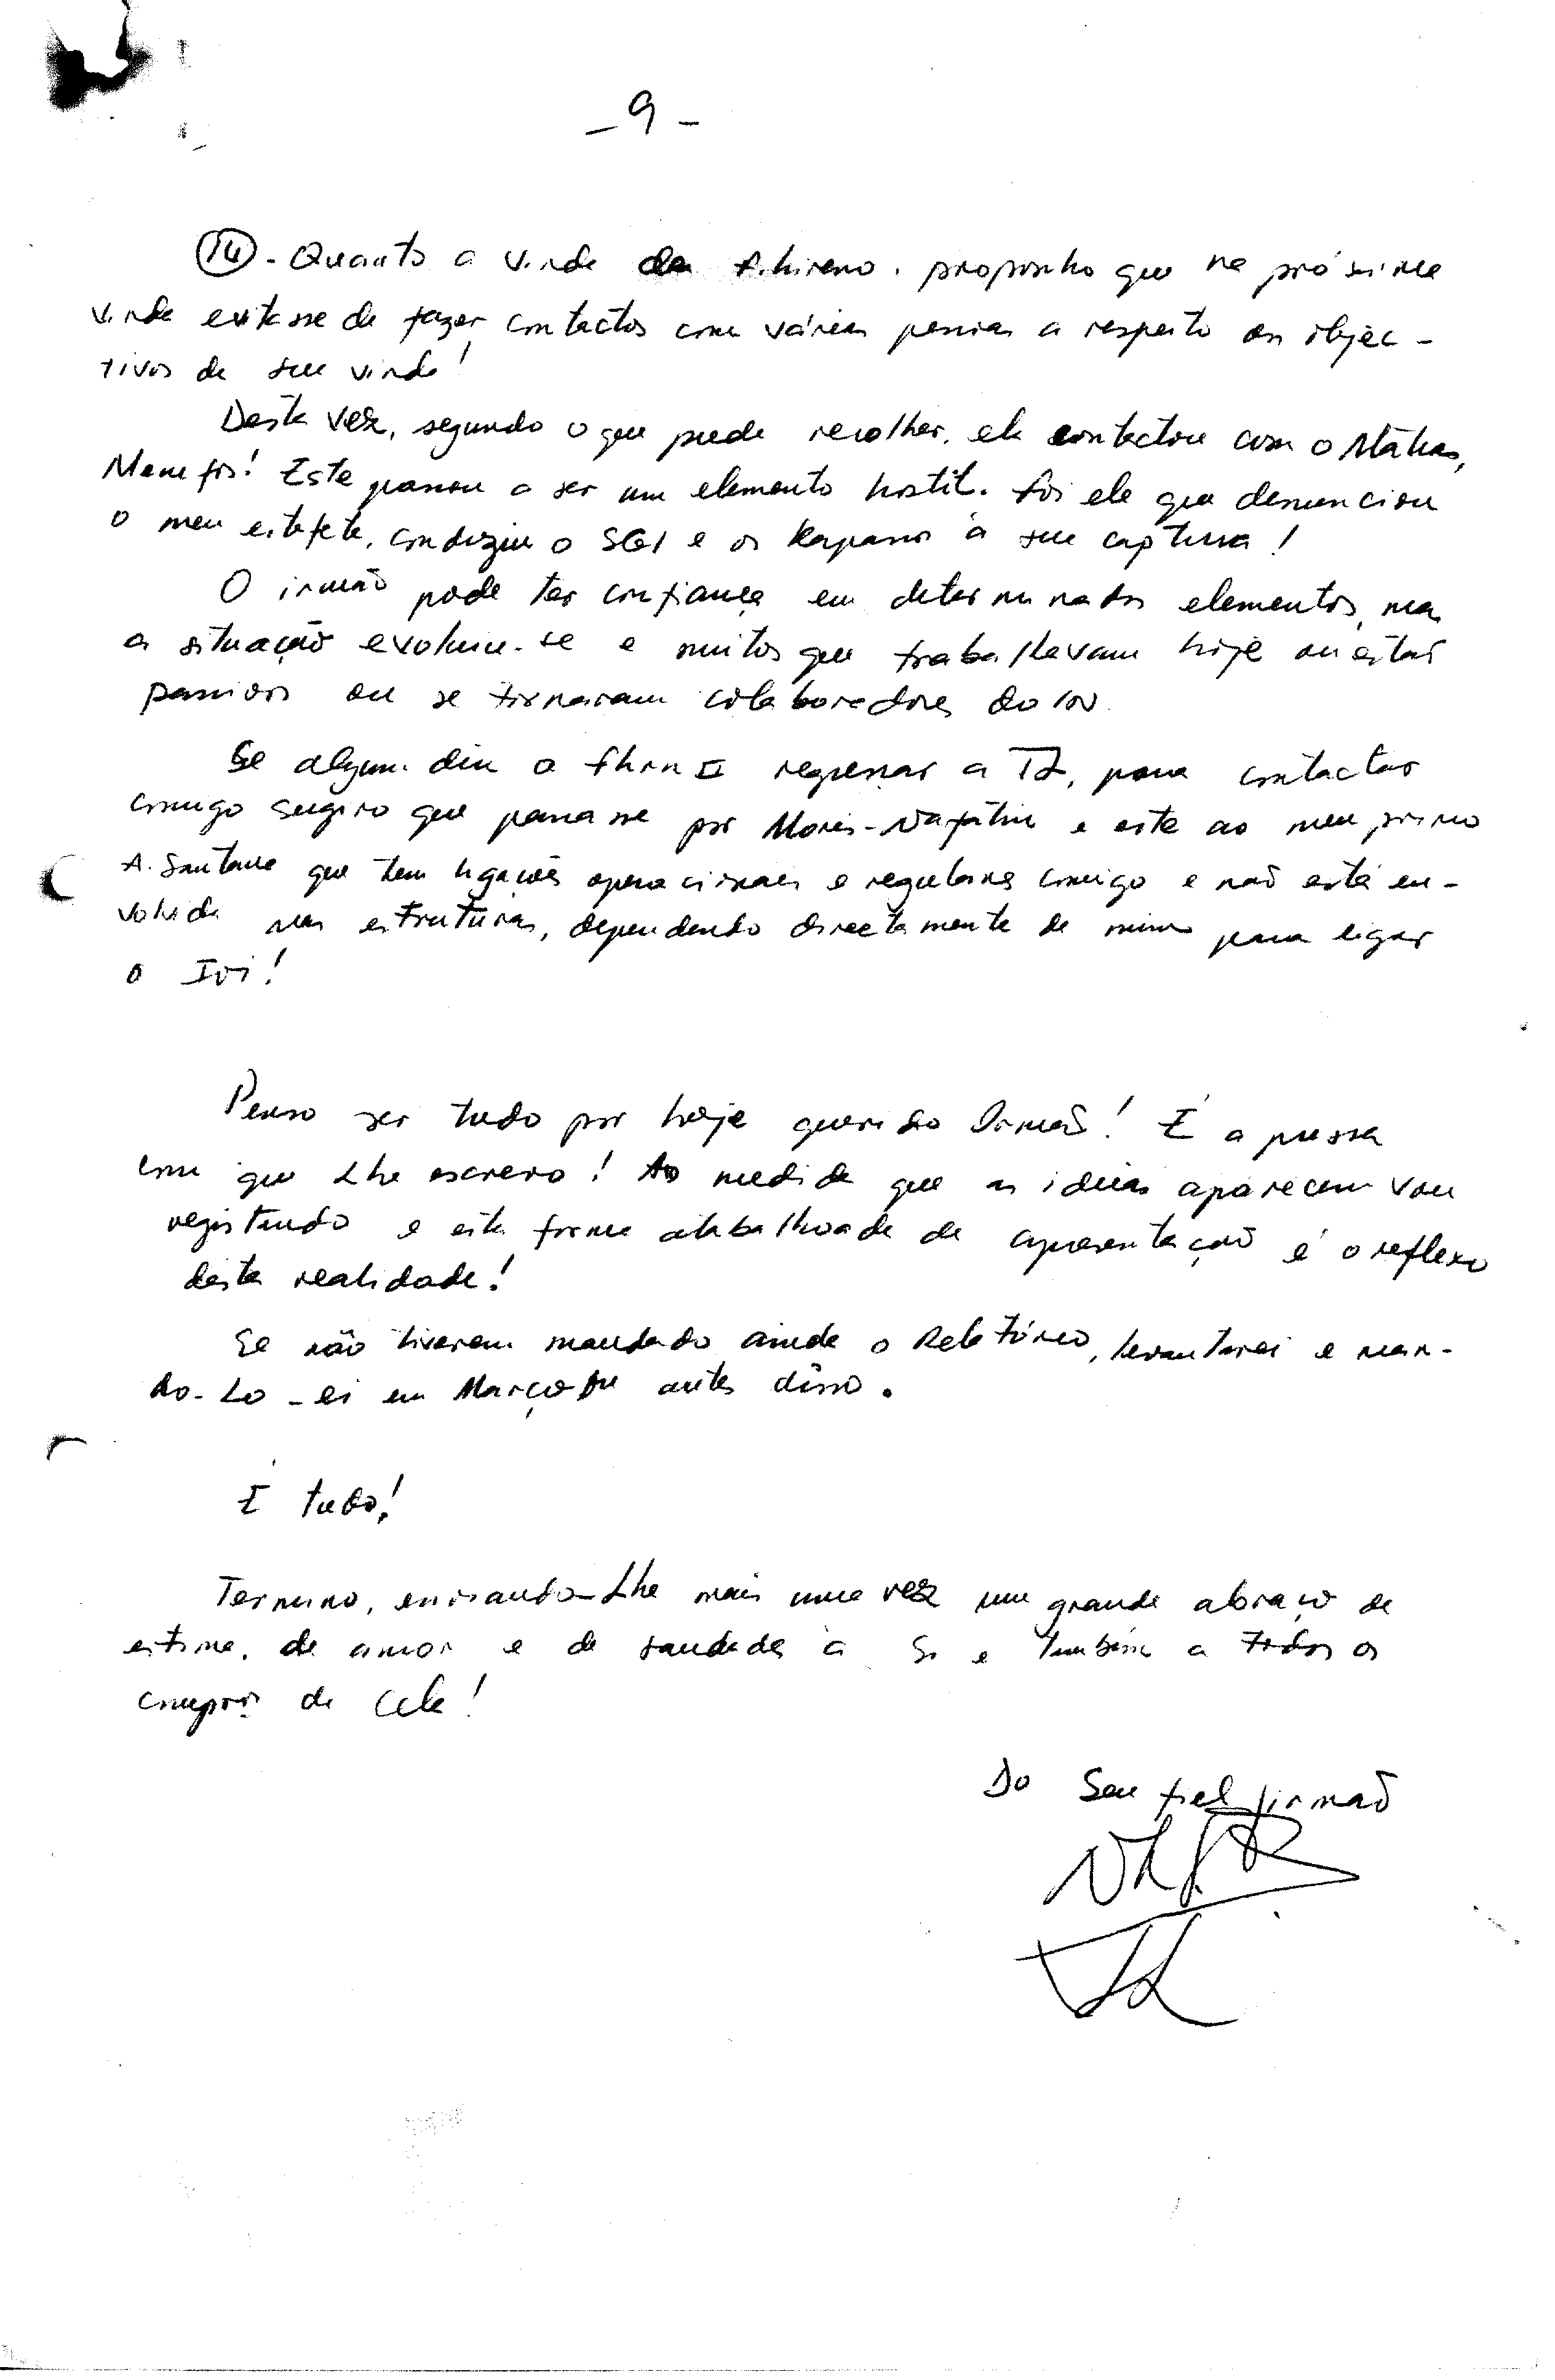 - 9 -
14 - Quanto a vinda da , proponho que na próxima
vinda evitasse de fazer contactos com várias pessoas a respeito os objec-
tivos de sua vinda!
Desta vez, segundo o que pude recolher, ela contactou com o Matias,
Este passou a ser um elemento hostil. Foi ele que denunciou
o meu estafeta, conduziu o SGI e os à sua captura!
O irmão pode ter confiança em determinados elementos, mas
a situação evoluiu-se e muitos que trabalhavam hoje ou estão
passivos ou se tornaram colaboradores do
Se algum dia a regressar a para contactar
comigo sugiro que passasse por e este ao meu primo
A. Santana que tem ligações operacionais e regulares comigo e não está en-
volvido nas estruturas, dependendo directamente de mim para ligar
o
Penso ser tudo por hoje querido Irmão! É a pressa
com que Lhe escrevo! Ao medida que as ideias aparecem vou
registando e esta forma atabalhoada de apresentação é o reflexo
desta realidade!
Se não tiverem mandado ainda o Relatório, levantarei e man-
do-Lo-ei em Março ou antes disso.
É tudo!
Termino, enviando-Lhe mais uma vez um grande abraço de
estima, de amor e de saudades a Si e também a todos os
de
Do Seu fiel irmão